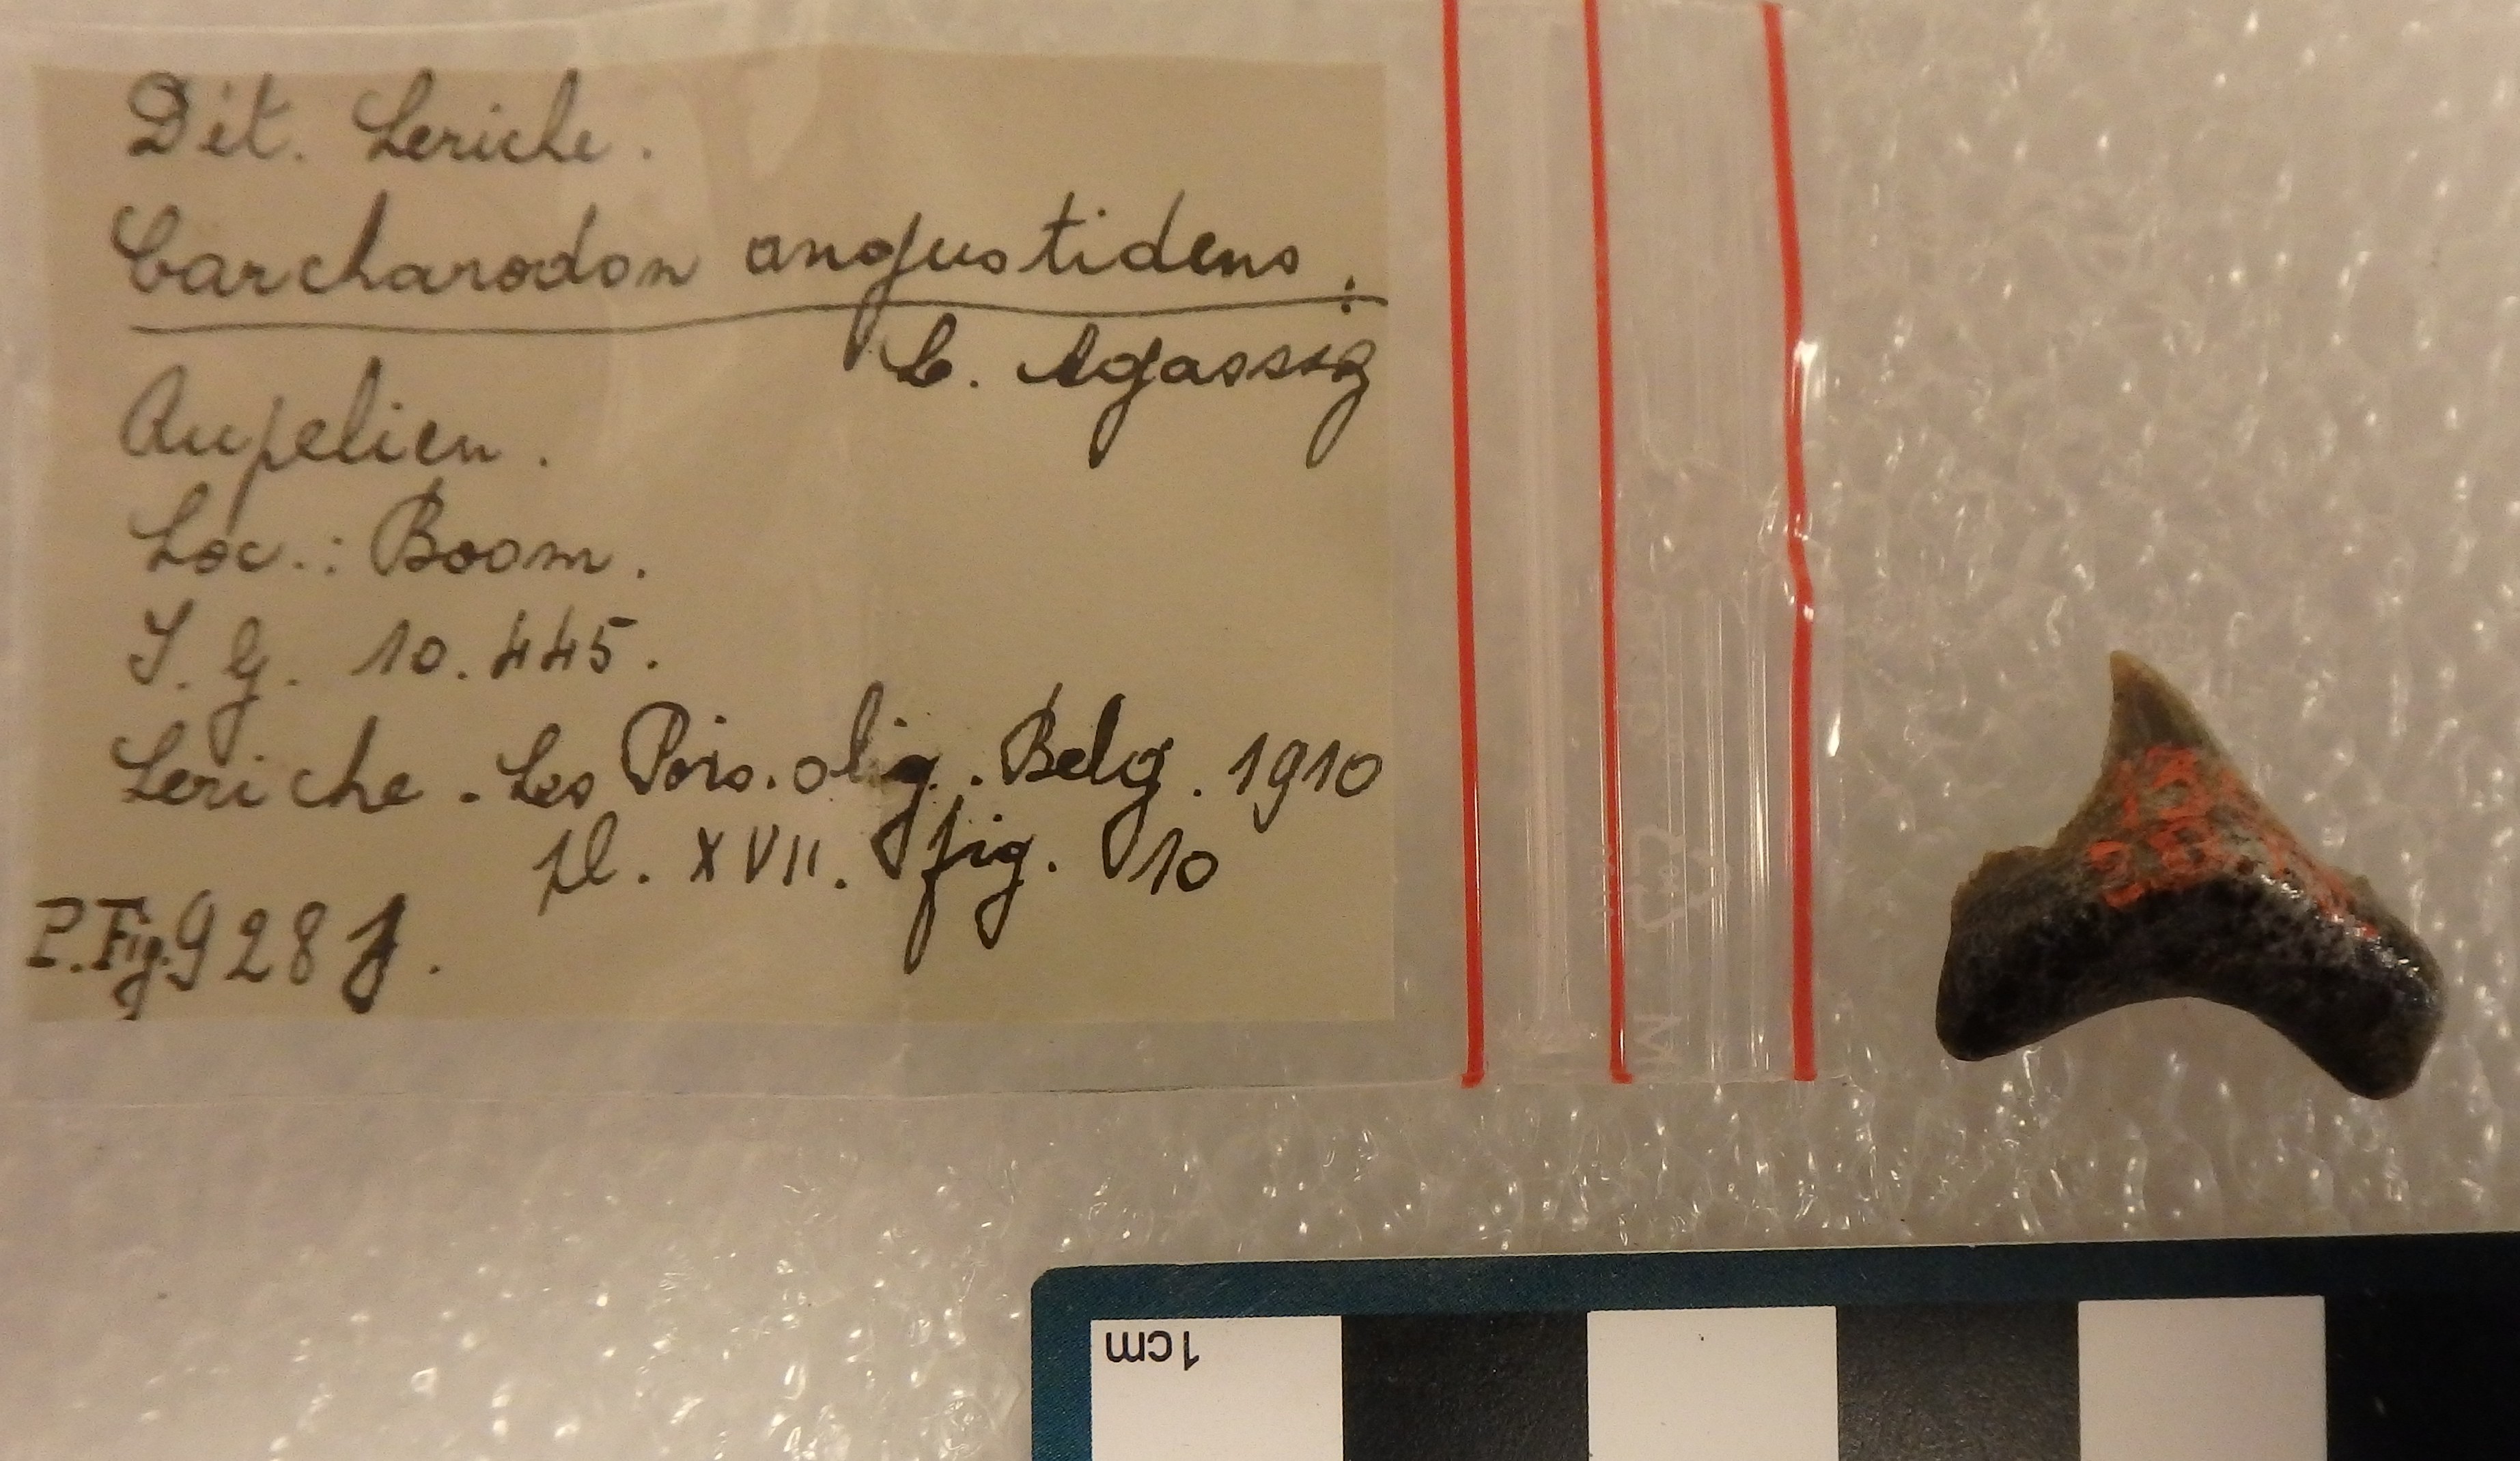 Dét. Leriche.
Carcharodon angustidens.
L. Agassiz
Rupelien.
Loc.: Boom.
I. G. 10.445.
Leriche. Les Pois. olig. Belg. 1910
pl. XVII. fig. 10
P.Fig. 928
1cm